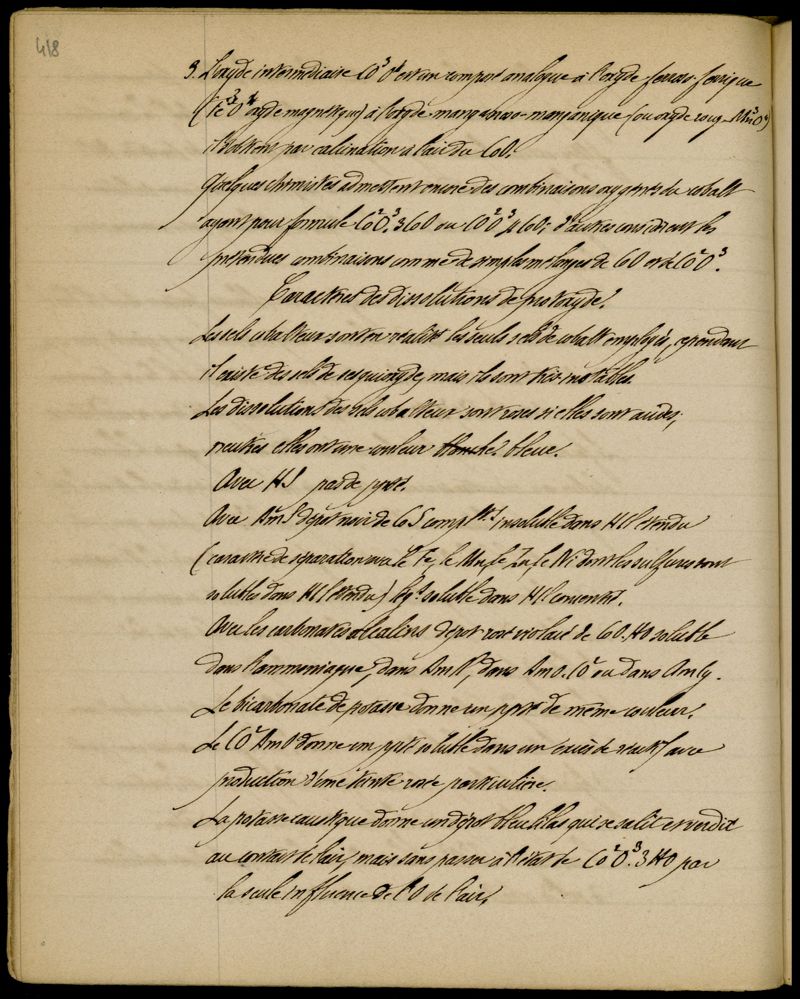 418
3. L'oxyde intermédiaire Co³O⁴ est un composé analogue à l'oxyde ferroso-ferrique
(Fe³O⁴ oxyde magnétique) à l'oxyde manganoso-manganique (ou oxyde rouge Mn³O⁴)
il s'obtient par calcination à l'air du CoO.
Quelques chimistes admettent encore des combinaisons oxygénées du cobalt
ayant pour formule Co²O³.3CoO ou Co²O³4CoO; d'autres considèrent les
prétendues combinaisons comme de simples mélanges de CoO et de Co²O³.
Caractères des dissolutions de protoxyde.
Les sels cobalteux sont en réalité les seuls sels de cobalt employés, cependant
il existe des sels de sesquioxyde, mais ils sont très instables.
Les dissolutions des sels cobalteux sont roses si elles sont acides;
neutres elles ont une couleur bleue.
Avec HS pas de ppté.
Avec AmS dépôt noir de CoS complt. insoluble dans HCl étendu
(caractère de séparation avec le Fe, le Mn, le Zn, le Ni dont les sulfures sont
solubles dans HCl étendu) soluble dans HCl concentré.
Avec les carbonates alcalins dépôt rose violacé de CoO.HO soluble
dans l'ammoniaque, dans dans AmO.CO² ou dans AmCy.
Le bicarbonate de potasse donne un ppté de même couleur.
Le CO²AmO donne un ppté soluble dans un excès de réactif avec
production d'une teinte rose particulière.
La potasse caustique donne un dépôt bleu lilas qui se salit et verdit
au contact de l'air, mais sans passer à l'état de Co²O³.3HO par
la seule influence de l'O de l'air.